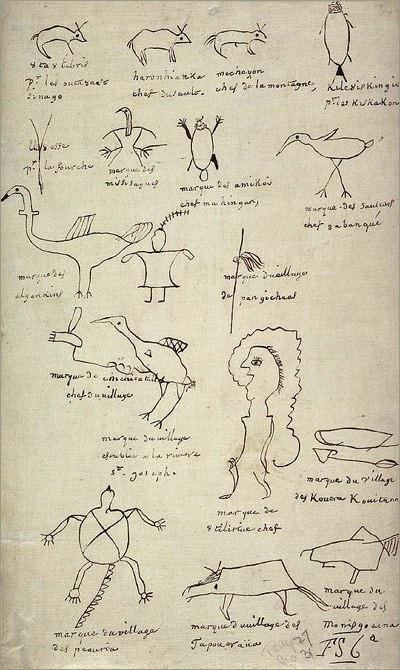 8ta8libris
p.r les outa8acs
sinago
haronhiateka
chef du sault.
mechayon
chef de la montagne,
Kileskingie
p.r les Kiskakon
Elisasse
p.r la fourche
marque des
missisagues
marque des amikois
chef mahingan,
marque des sauteurs
chef 8abangué
marque des
algonkins
marque du village
de pangicheas
marque de chichicatalo
chef du village
marque du village
establie a la riviere
St. joseph.
marque de
8tilirine chef
marque du village
des Kouera Kouitanon
marque du village
des peauria
marque du village des
Tapouaroua
marque du
village des
Monisgoaena